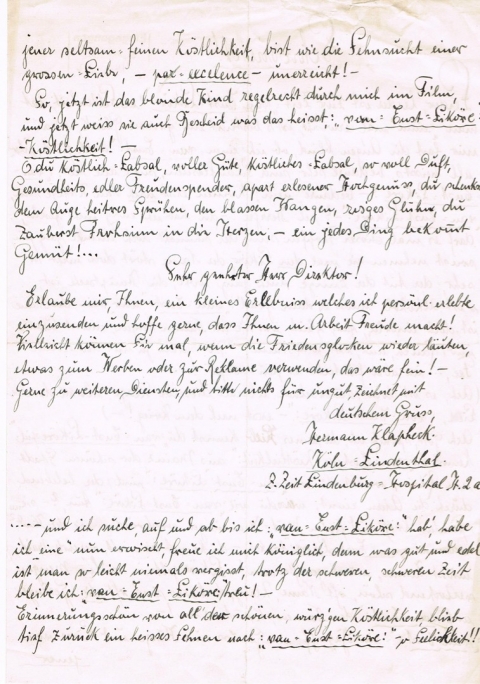 jener seltsam-feinen Köstlichkeit, bist wie die Sehnsucht einer
grossen-Liebe, - par-excelence - unerreicht! -
So, jetzt ist das blonde Kind regelrecht durch mich im Film,
und jetzt weiss sie auch Bescheid was das heisst: "van=Enst=Liköre:"
-Köstlichkeit! -
O du Köstlich-Labsal, voller Güte, köstliches-Labsal, so voll Duft,
Gesundheits, edler Freudenspender, apart erlesener Hochgenuss, du schenkst
dem Auge heitres Sprühen, den blassen Wangen, rosges Glühn, du
zauberst Frohsinn in die Herzen, - ein jedes Ding bekommt
Gemüt!...
Sehr geehrter Herr, Direktor!
Erlaube mir, Ihnen, ein kleines Erlebniss welches ich persönl. erlebte
einzusenden und hoffe gerne, dass Ihnen m. Arbeit Freude macht!
Vielleicht können Sie mal, wenn die Friedensglocken wieder läuten,
etwas zum Werben oder zur Reklame verwenden, das wäre fein! -
Gerne zu weiteren Diensten, und bitte nichts für ungut, zeichnet mit
deutschem Gruss,
Hermann Klapheck
Köln=Lindenthal
z. Zeit Lindenburg=Hospital St. 2a
....- und ich suche, auf und ab bis ich: "van=Enst=Liköre:" hab', habe
ich "eine" nun erwischt, freue ich mich königlich, denn was gut und edel
ist "man so leicht niemals vergisst, trotz der schweren, schweren Zeit
bleibe ich: "van=Enst=Liköre: treu! -
Erinnerungsschön von all der schönen, würzgen Köstlichkeit blieb
tief zurück ein heisses Sehnen nach: "van=Enst=Liköre:" - Seelichkeit!!